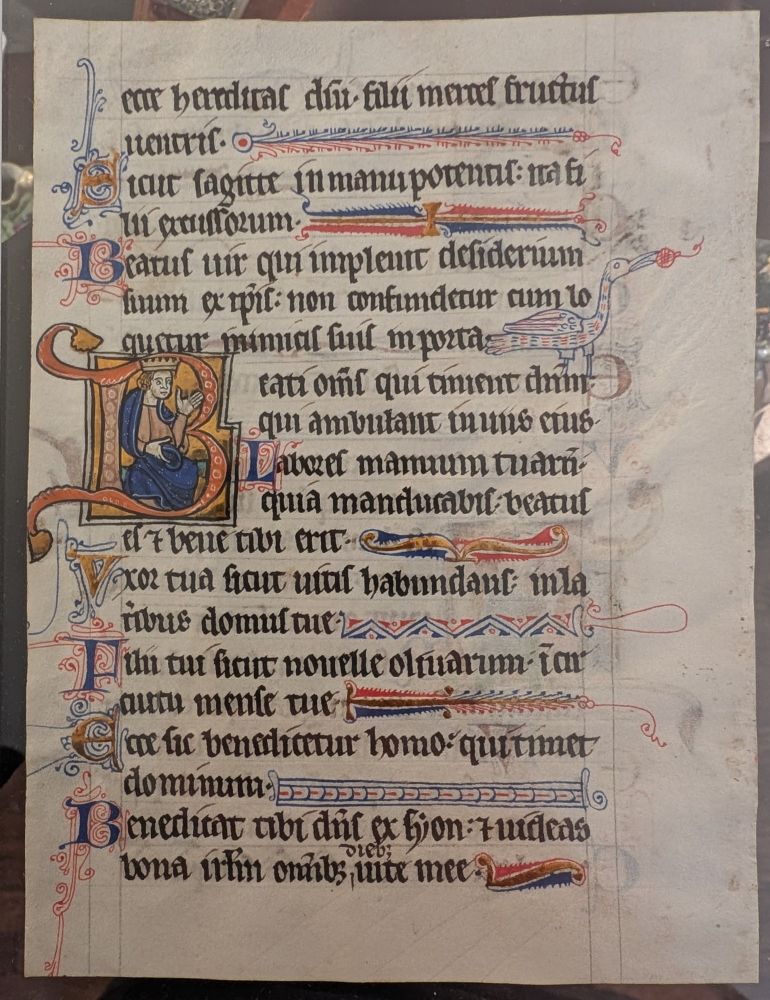 ecce hereditas dñi· filii merces fructus
uentris·
Sicut sagitte in manu potentis: ita fi
lii excussorum·
Beatus uir qui impleuit desiderium
suum ex ip̄is: non confundetur cum lo
quetur inimicis suis in porta·
Beati om̄s qui timent dn̄m:
qui ambulant in uiis eius·
Labores manuum tuarū·
quia manducabis· beatus
es ⁊ bene tibi erit·
Uxor tua sicut uitis habundans: in la
t̾ibus domus tue·
Filii tui sicut nouelle oliuarum· ī cir
cuitu mense tue·
Ecce sic benedicetur homo: qui timet
dominum·
Benedicat tibi dn̄s ex syon: ⁊ uideas
bona irl̄m om̄ibꝫ diebꝫ uite mee·